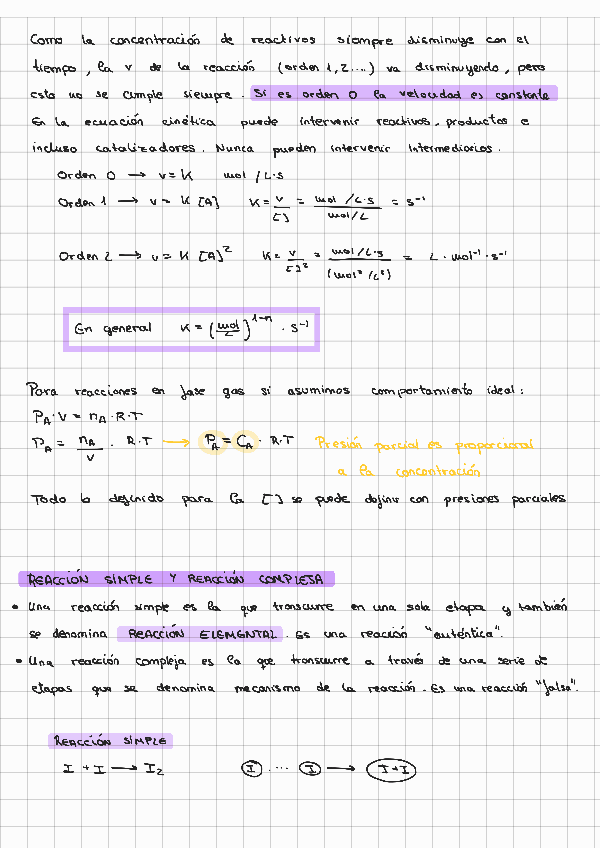 Como la concentración de reactivos siempre disminuye con el
tiempo, la v de la reacción (orden 1,2....) va disminuyendo, pero
esto no se cumple siempre. Si es orden 0 la velocidad es constante
En la ecuación cinética puede intervenir reactivos, productos e
incluso catalizadores. Nunca pueden intervenir intermediarios.
Orden 0 → v = K mol /L·s
Orden 1 → v = K [A] K = v/[] = (mol/L·s)/(mol/L) = s⁻¹
Orden 2 → v = K [A]² K = v/[]² = (mol/L·s)/(mol²/L²) = L·mol⁻¹·s⁻¹
En general K = (mol/L)¹⁻ⁿ · s⁻¹
Para reacciones en fase gas si asumimos comportamiento ideal:
P_A·V = n_A·R·T
P_A = n_A/V · R·T → P_A = C_A · R·T Presión parcial es proporcional
a la concentración
Todo lo definido para la [] se puede definir con presiones parciales
REACCIÓN SIMPLE Y REACCIÓN COMPLEJA
• Una reacción simple es la que transcurre en una sola etapa y también
se denomina REACCIÓN ELEMENTAL. Es una reacción "auténtica".
• Una reacción compleja es la que transcurre a través de una serie de
etapas que se denomina mecanismo de la reacción. Es una reacción "falsa".
REACCIÓN SIMPLE
I + I → I₂ I .... I → I+I